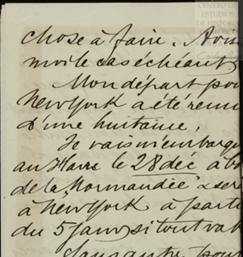 chose à faire. Avis
moi le cas échéant
Mon départ pou
New York a été remi
d'une huitaine,
Je vais m'embarqu
au Havre le 28 déc à b
de la Normandie & ser
à New York à parti
du 5 janv si tout va b